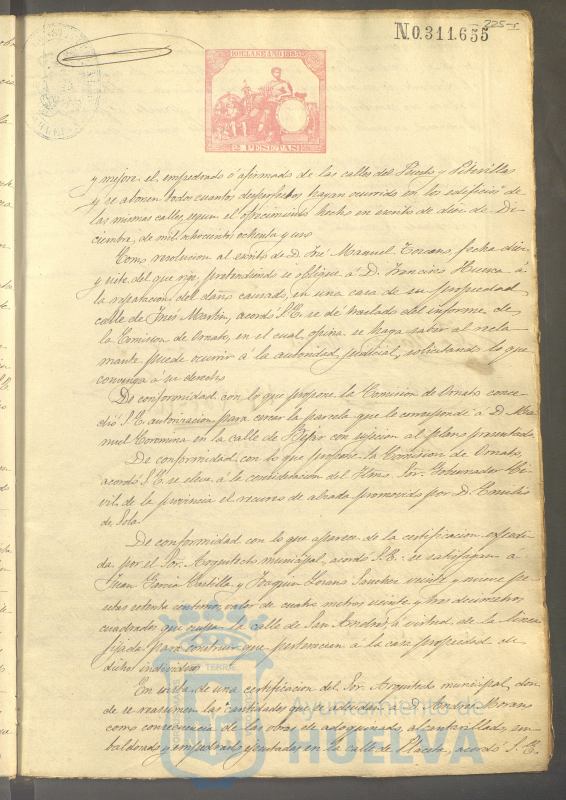 N.0.311.655
225-r
10ª CLASE AÑO 1885
2 PESETAS
y mejore el empedrado ó afirmado de las calles del Puerto y
y se abonen todos cuantos desperfectos hayan ocurrido en los edificios de
las mismas calles segun el ofrecimiento hecho en escrito de diez de Di-
ciembre, de mil ochocientos ochenta y uno.
Como resolucion al escrito de D. José Manuel fecha diez
y siete del que rije, pretendiendo se obligue á D. Francisco Huesca á
la reparacion del daño causado, en una casa de su propiedad
calle de Ines Martin, acordó S.E. se dé traslado del informe de
la Comision de Ornato, en el cual, opina se haga saber al recla
mante puede ocurrir á la autoridad judicial, solicitando lo que
convenga á su derecho.
De conformidad con lo que propone la Comision de Ornato conce
dió S.E. autorizacion para cercar la parcela que le corresponde á D. Ma-
nuel Coromina en la calle de con sujecion al plano presentado.
De conformidad con lo que propone la Comision de Ornato,
acordó S.E. se eleve á la consideracion del Iltmo. Sor. Gobernador Ci-
vil de la provincia el recurso de alzada promovido por D. Emilio
de Sola.
De conformidad con lo que aparece de la certificacion expedi-
da por el Sor. Arquitecto municipal, acordó S.E. se satisfagan á
Juan Garcia y Joaquin Lozano Sanchez veinte y nueve pe-
setas setenta centimos, valor de cuatro metros veinte y tres decimetros
cuadrados que ocupa la calle de San Andres, á virtud de la linea
fijada para construir que pertenecian á la casa propiedad de
dichos individuos.
En vista de una certificacion del Sor. Arquitecto municipal, don
de se resumen las cantidades que se adeudan á D. Morano
como consecuencia de las obras de adoquinado, alcantarillado, em-
baldosado y empedrado ejecutadas en la calle de Placeta, acordó S.E.
Ayuntamiento de
HUELVA